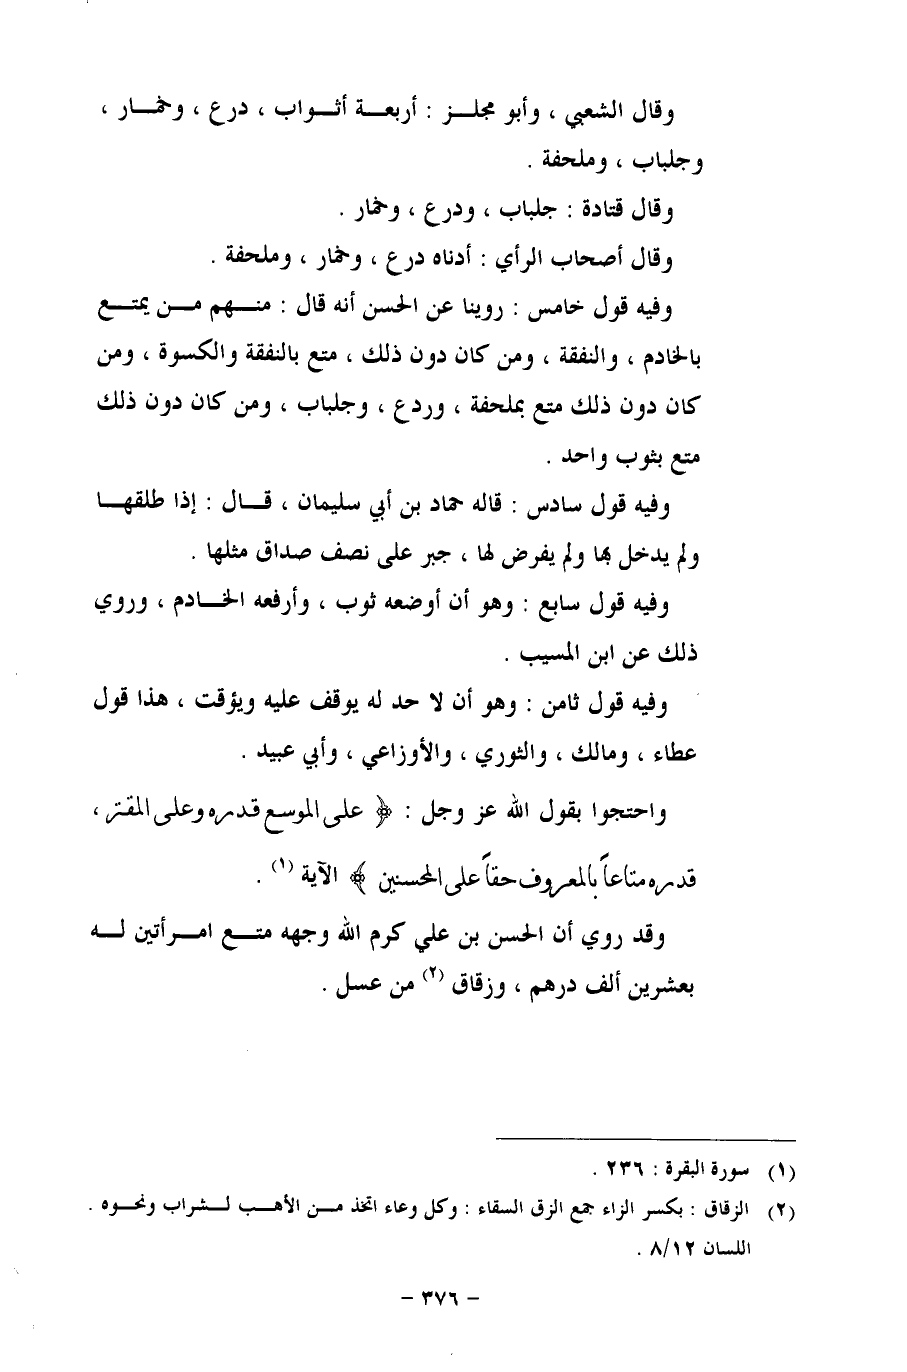 وقال الشعبي ، وأبو مجلز : أربعة أثواب ، درع ، وخمار ،
وجلباب ، وملحفة .
وقال قتادة : جلباب ، ودرع ، وخمار .
وقال أصحاب الرأي : أدناه درع ، وخمار ، وملحفة .
وفيه قول خامس : روينا عن الحسن أنه قال : منهم من يمتع
بالخادم ، والنفقة ، ومن كان دون ذلك ، متع بالنفقة والكسوة ، ومن
كان دون ذلك متع بملحفة ، وردع ، وجلباب ، ومن كان دون ذلك
متع بثوب واحد .
وفيه قول سادس : قاله حماد بن أبي سليمان ، قال : إذا طلقها
ولم يدخل بها ولم يفرض لها ، جبر على نصف صداق مثلها .
وفيه قول سابع : وهو أن أوضعه ثوب ، وأرفعه الخادم ، وروي
ذلك عن ابن المسيب .
وفيه قول ثامن : وهو أن لا حد له يوقف عليه ويؤقت ، هذا قول
عطاء ، ومالك ، والثوري ، والأوزاعي ، وأبي عبيد .
واحتجوا بقول الله عز وجل : ﴿ على الموسع قدره وعلى المقتر ،
قدره متاعاً بالمعروف حقاً على المحسنين ﴾ الآية (١) .
وقد روي أن الحسن بن علي كرم الله وجهه متع امرأتين له
بعشرين ألف درهم ، وزقاق (٢) من عسل .
(١) سورة البقرة : ٢٣٦ .
(٢) الزقاق : بكسر الزاء جمع الزق السقاء : وكل وعاء اتخذ من الأهب لشراب ونحوه .
اللسان ٨/١٢ .
- ٣٧٦ -